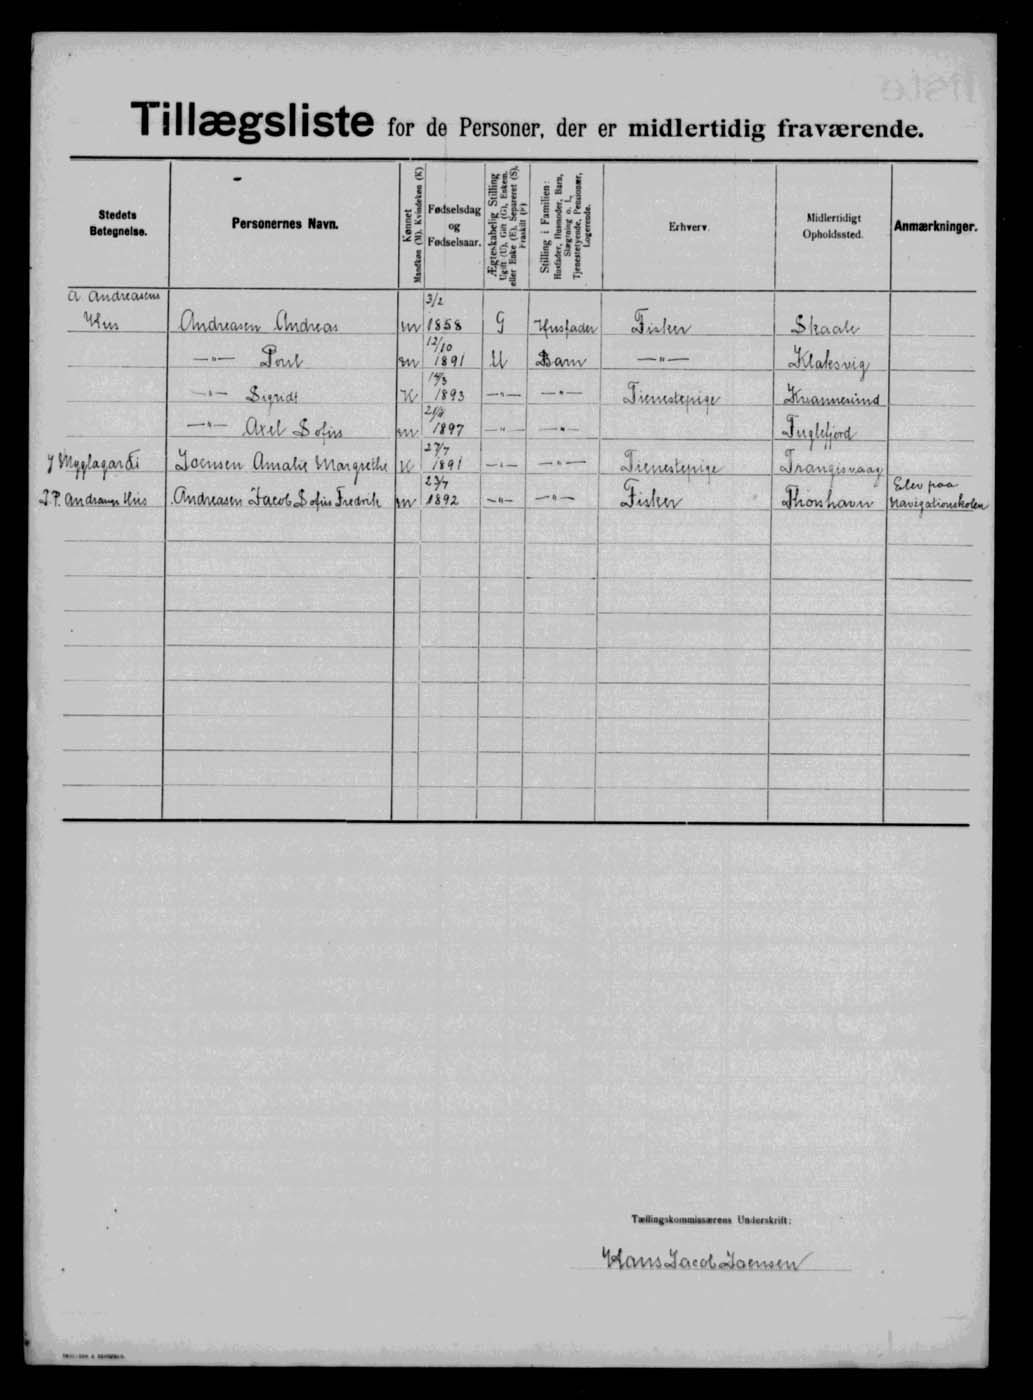 Tillægsliste for de Personer, der er midlertidig fraværende.
Stedets Betegnelse. Personernes Navn. Kønnet Mandkøn (M), Kvindekøn (K) Fødselsdag og Fødselsaar. Ægteskabelig Stilling Ugift (U), Gift (G), Enkem. eller Enke (E), Separeret (S), Fraskilt (F) Stilling i Familien: Husfader, Husmoder, Barn, Slægtning o. l., Tjenestetyende, Pensionær, Logerende. Erhverv. Midlertidigt Opholdssted. Anmærkninger.
A Andreasens 3/2
Hus Andreasen Andreas m 1858 G Husfader Fisker Skaale
12/10
—"— Poul m 1891 U Barn —"— Klaksvig
—"— Sigridt K 1893 —"— —"— Tienestepige Kvannesund
—"— Axel Sofus m 1897 —"— —"— Fuglefjord
27/7
J Myglagardi Joensen Amalie Margrethe K 1891 —"— —"— Tienestepige Trangisvaag
23/7 Elev paa
J. P. Andreas Hus Andreasen Jacob Sofus Fredrik m 1892 —"— —"— Fisker Thorshavn Navigationskolen
Tællingskommissærens Underskrift:
Hans Jacob Joensen